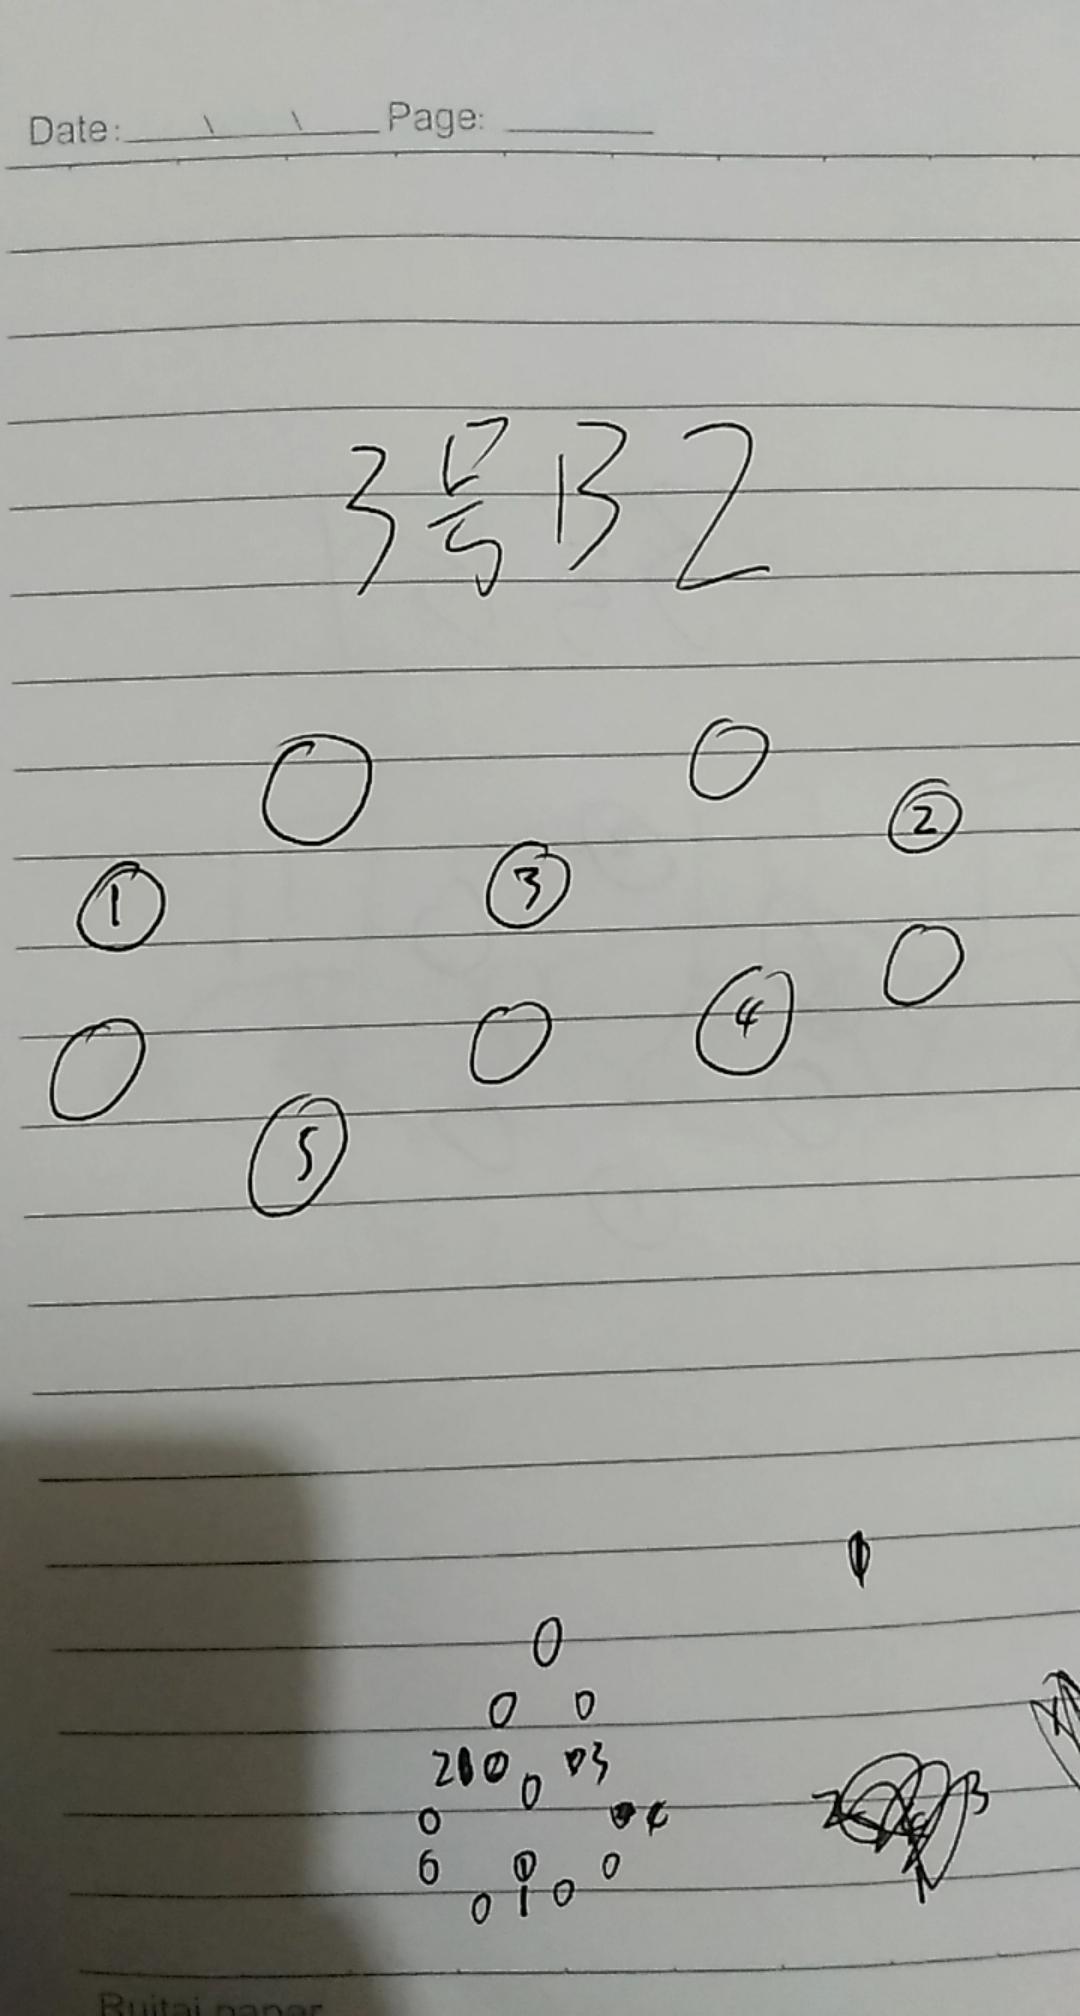 Date: \ \ Page:
3号BZ
2
1 3
4
5
0
0 0
0 3
0
0 4
6 0
0 1 0
2 3
Ruitai paper